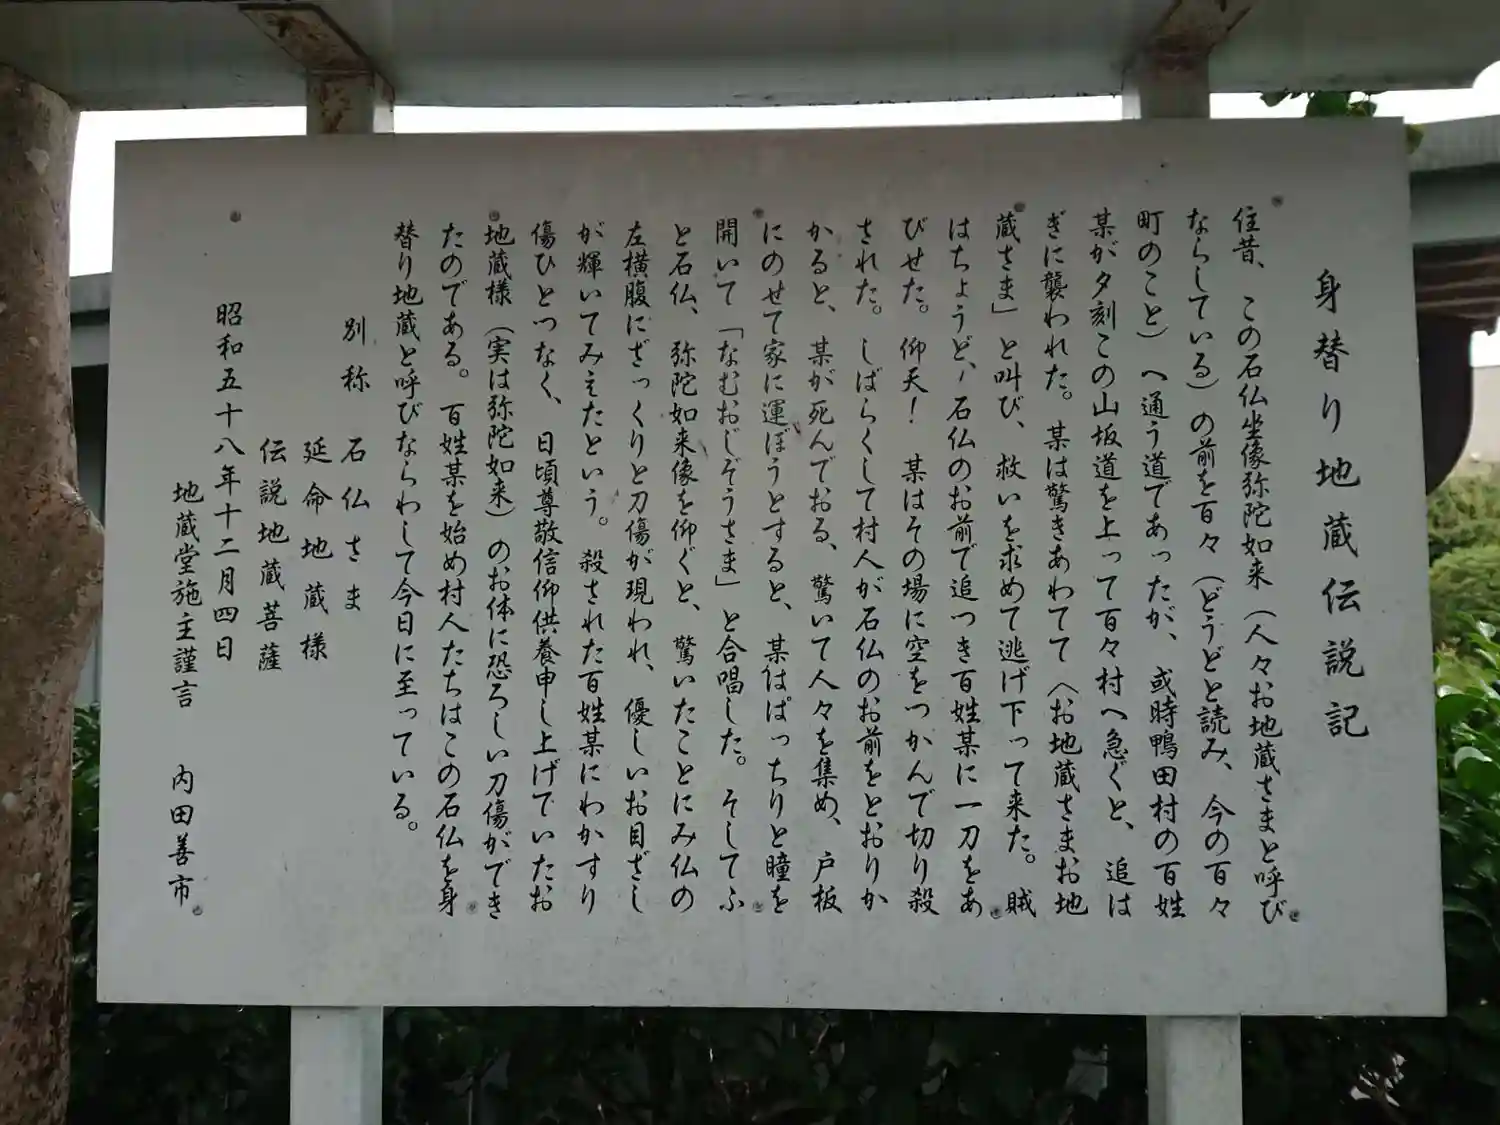 身替り地蔵伝説記
住昔、この石仏坐像弥陀如来(人々お地蔵さまと呼び
ならしている)の前を百々(どうどと読み、今の百々
町のこと)へ通う道であったが、或時鴨田村の百姓
某が夕刻この山坂道を上って百々村へ急ぐと、追は
ぎに襲われた。某は驚きあわてて〈お地蔵さまお地
蔵さま」と叫び、救いを求めて逃げ下って来た。賊
はちょうど、石仏のお前で追つき百姓某に一刀をあ
びせた。仰天!某はその場に空をつかんで切り殺
された。しばらくして村人が石仏のお前をとおりか
かると、某が死んでおる、驚いて人々を集め、戸板
にのせて家に運ぼうとすると、某はぱっちりと瞳を
開いて「なむおじぞうさま」と合唱した。そしてふ
と石仏、弥陀如来像を仰ぐと、驚いたことにみ仏の
左横腹にざっくりと刀傷が現われ、優しいお目ざし
が輝いてみえたという。殺された百姓某にわかすり
傷ひとつなく、日頃尊敬信仰供養申し上げていたお
地蔵様(実は弥陀如来)のお体に恐ろしい刀傷ができ
たのである。百姓某を始め村人たちはこの石仏を身
替り地蔵と呼びならわして今日に至っている。
別称 石仏さま
延命地蔵様
伝説地蔵菩薩
昭和五十八年十二月四日
地蔵堂施主謹言 内田善市